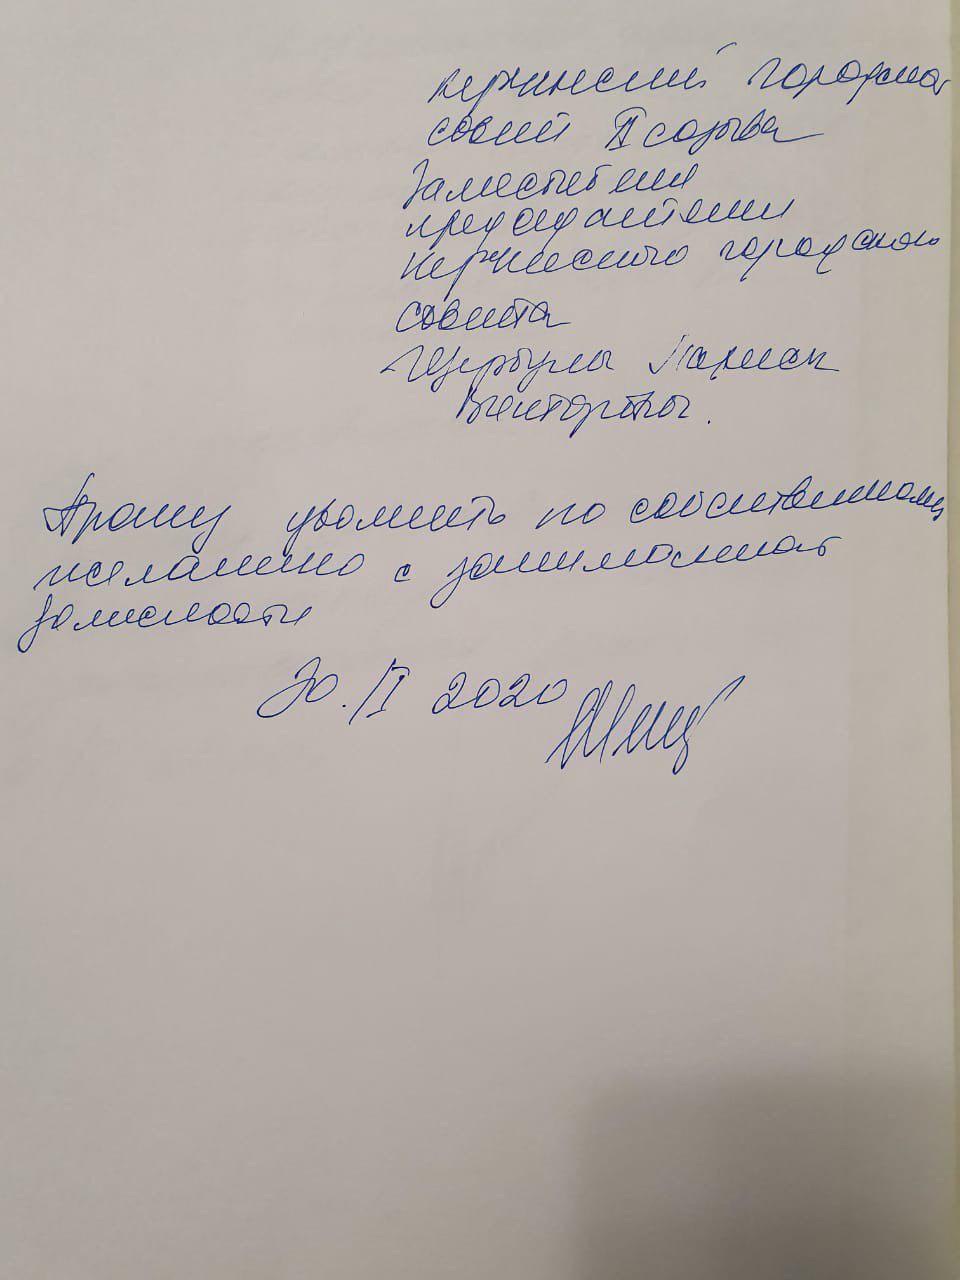 Керченский городской
совет II созыва
Заместителя
председателя
Керченского городского
совета
Щербулы Ларисы
Викторовны.
Прошу уволить по собственному
желанию с занимаемой
должности
30. IX 2020